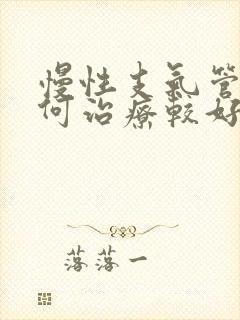 慢性支氣管
何治療較好
落落一